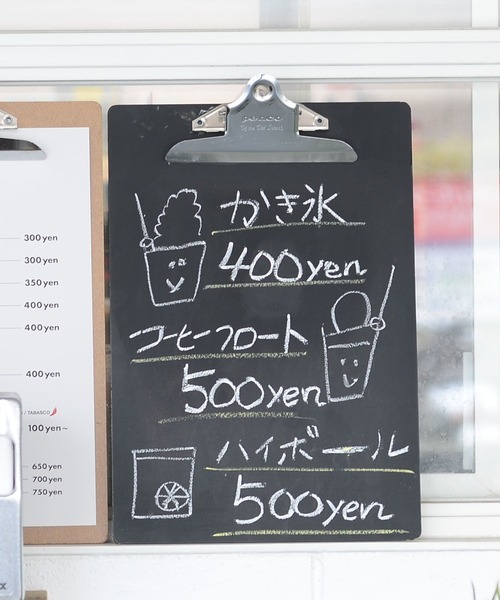 300 yen
300 yen
350 yen
400 yen
400 yen
400 yen
/ TABASCO
100 yen~
650 yen
700 yen
750 yen
penco
かき氷
400yen
コーヒーフロート
500yen
ハイボール
500yen